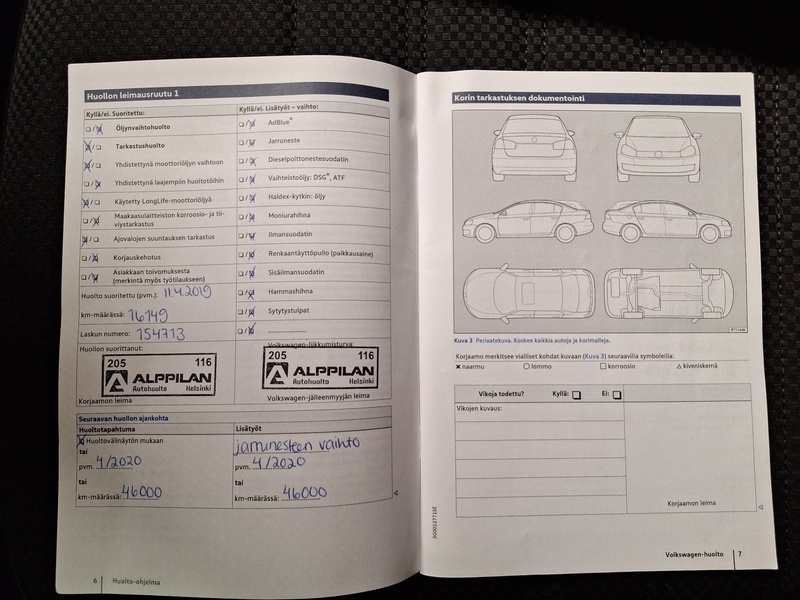 Huollon leimausruutu 1
Kyllä/ei. Suoritettu:
Öljynvaihtohuolto
Tarkastushuolto
Yhdistettynä moottoriöljyn vaihtoon
Yhdistettynä laajempiin huoltotöihin
Käytetty LongLife-moottoriöljyä
Maakaasulaitteiston korroosio- ja tii-
viystarkastus
Ajovalojen suuntauksen tarkastus
Korjauskehotus
Asiakkaan toivomuksesta
(merkintä myös työtilaukseen)
Huolto suoritettu (pvm.): 11.4.2019
km-määrässä: 16149
Laskun numero: 154713
Kyllä/ei. Lisätyöt – vaihto:
AdBlue®
Jarruneste
Dieselpolttonestesuodatin
Vaihteistoöljy: DSG®, ATF
Haldex-kytkin: öljy
Moniurahihna
Ilmansuodatin
Renkaantäyttöpullo (paikkausaine)
Sisäilmansuodatin
Hammashihna
Sytytystulpat
Huollon suorittanut:
205 116
ALPPILAN
Autohuolto Helsinki
Korjaamon leima
Volkswagen-liikkumisturva:
205 116
ALPPILAN
Autohuolto Helsinki
Volkswagen-jälleenmyyjän leima
Seuraavan huollon ajankohta
Huoltotapahtuma
Huoltovälinäytön mukaan
tai
pvm. 4/2020
tai
km-määrässä: 46000
Lisätyöt
jarrunesteen vaihto
pvm. 4/2020
tai
km-määrässä: 46000
6 Huolto-ohjelma
Korin tarkastuksen dokumentointi
Kuva 3 Periaatekuva. Koskee kaikkia autoja ja korimalleja.
Korjaamo merkitsee vialliset kohdat kuvaan (Kuva 3) seuraavilla symboleilla:
naarmu lommo korroosio kiveniskemä
Vikoja todettu? Kyllä: Ei:
Vikojen kuvaus:
Korjaamon leima
Volkswagen-huolto 7